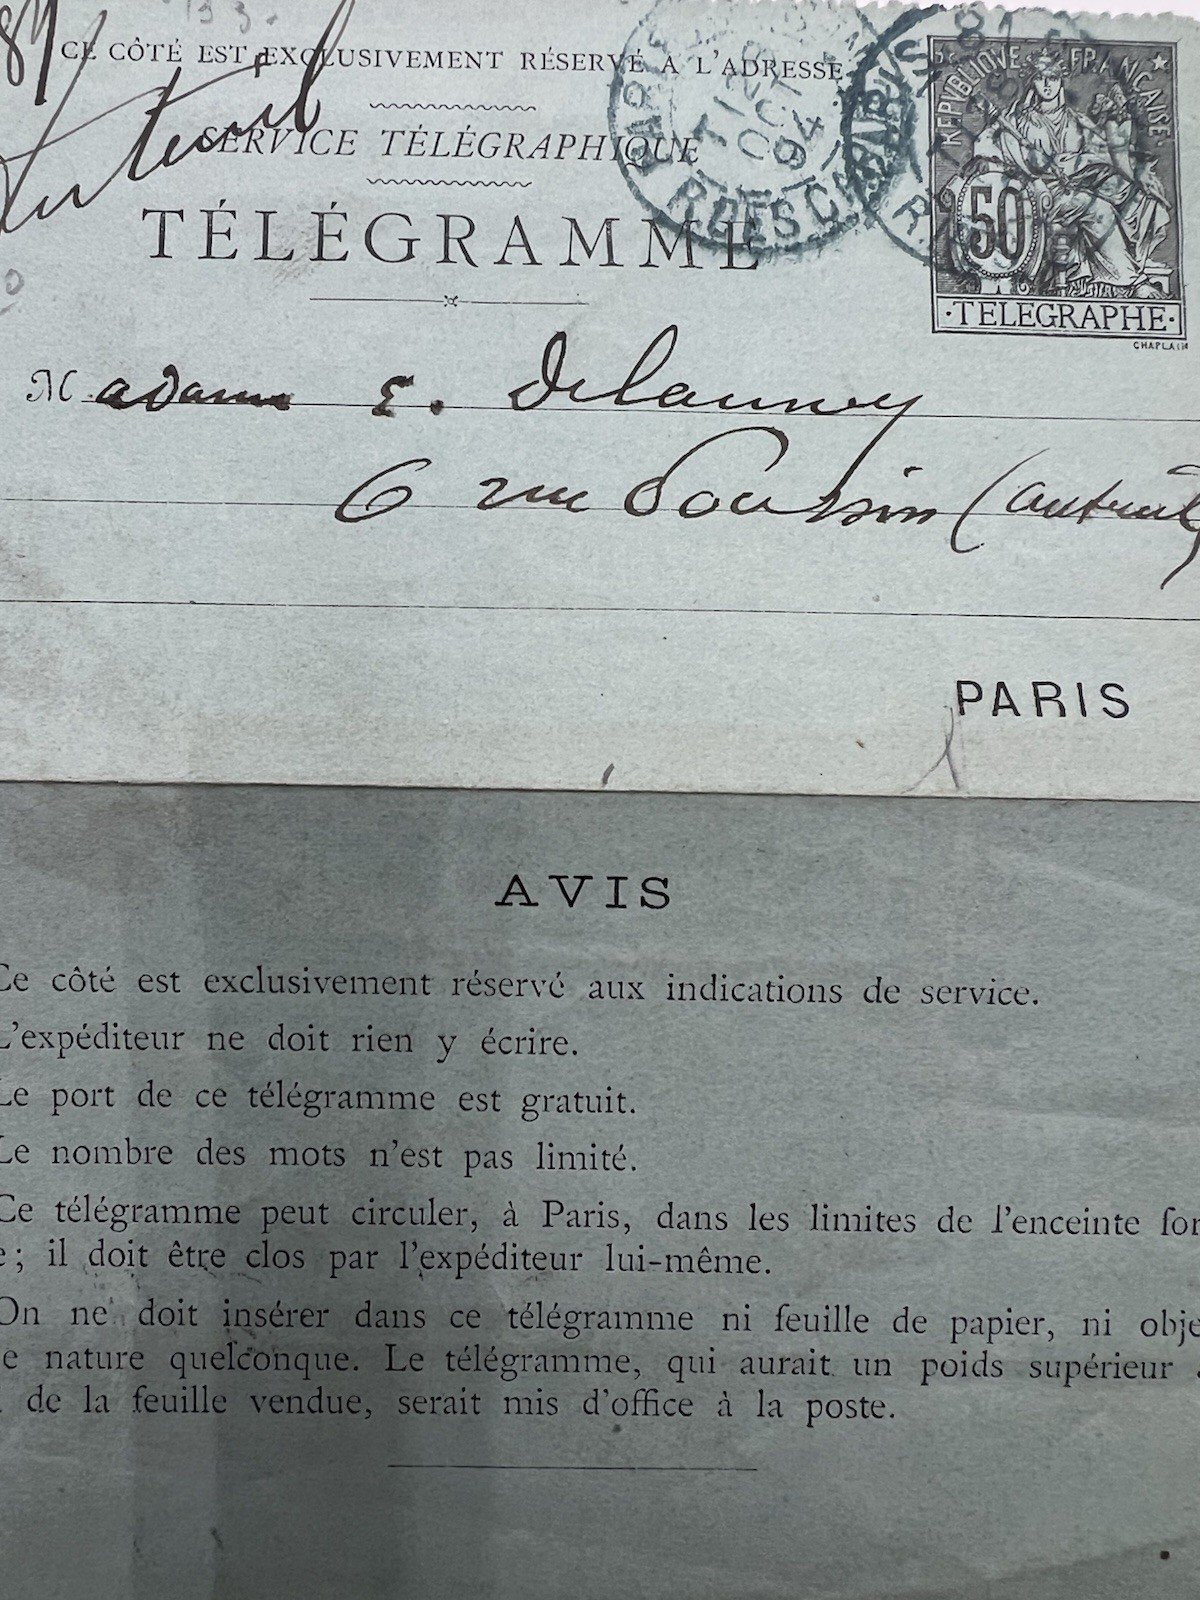 CE CÔTÉ EST EXCLUSIVEMENT RÉSERVÉ A L'ADRESSE
Auteuil
SERVICE TÉLÉGRAPHIQUE
TÉLÉGRAMME
REPUBLIQUE FRANÇAISE
50
·TELEGRAPHE·
CHAPLAIN
PARIS
12 OCT 94
Madame E. Delaunay
6 rue Poussin (Auteuil
PARIS
AVIS
Ce côté est exclusivement réservé aux indications de service.
L'expéditeur ne doit rien y écrire.
Le port de ce télégramme est gratuit.
Le nombre des mots n'est pas limité.
Ce télégramme peut circuler, à Paris, dans les limites de l'enceinte for
e; il doit être clos par l'expéditeur lui-même.
On ne doit insérer dans ce télégramme ni feuille de papier, ni obje
e nature quelconque. Le télégramme, qui aurait un poids supérieur
de la feuille vendue, serait mis d'office à la poste.